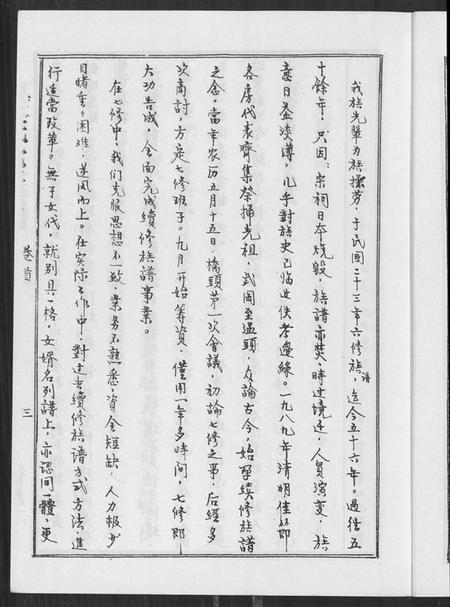 我族先輩为族操劳，于民國二十三年六修族譜，迄今五十六年。過往五
十餘年，只因：宗祠日本烧毀，族譜亦焚，時过境迁，人負演変，族
意日益淡薄，儿乎對族史已临近佚考邊緣。一九八九年清明佳節即
各房代表齊集祭掃先祖，武岡至温頭，众論古今，始孕续修族譜
之念，當年农历五月十五日，橋頭苐一次會議，初論七修之事，后經多
次商討，方定七修班子。九月开始筹资，僅用一年多時间，七修即
大功告成，全面完成續修族譜事業。
在七修中，我們克服思想不一致，業务不熟悉，資金短缺，人力极少
目睹重々困难，逆风而上。在实际工作中，對过去續修族譜方式方法，進
行适當改革。無子女代，就别具一格，女婿名列譜上，亦認同一體，更
卷首
三